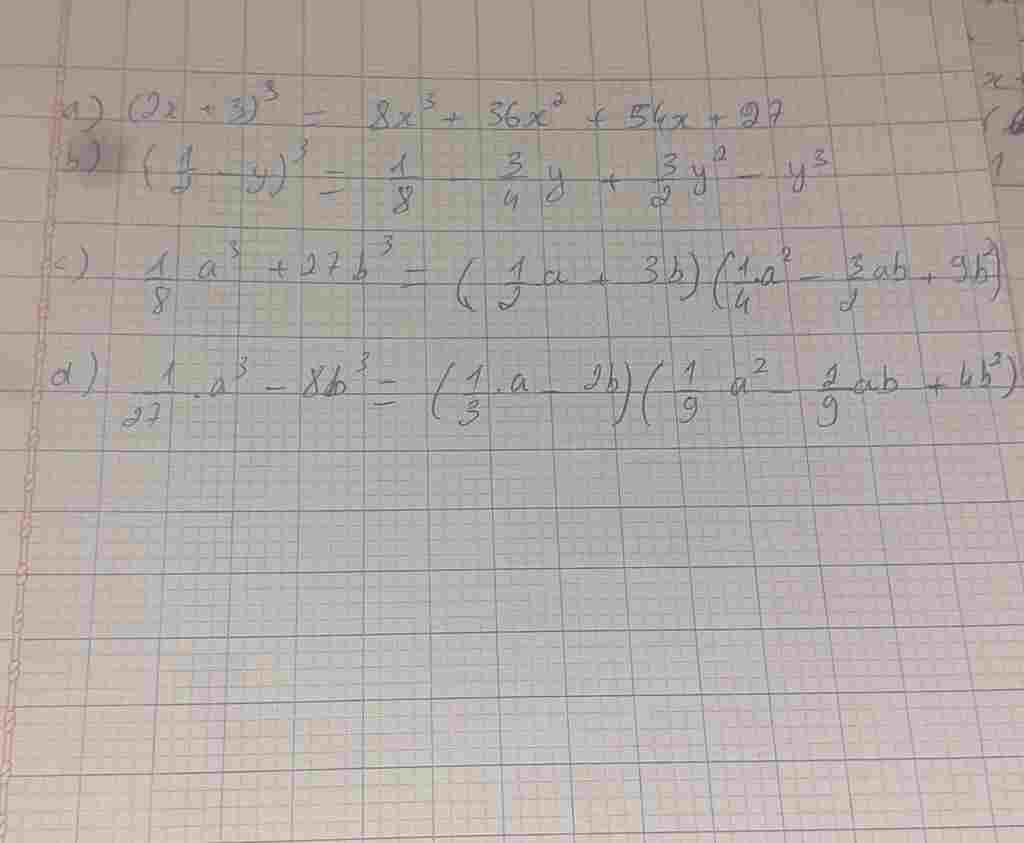 a) (2x + 3)³ = 8x³ + 36x² + 54x + 27
b) (1/2 - y)³ = 1/8 - 3/4 y + 3/2 y² - y³
c) 1/8 a³ + 27b³ = (1/2 a + 3b)(1/4 a² - 3/2 ab + 9b²)
d) 1/27 . a³ - 8b³ = (1/3 . a - 2b)(1/9 a² - 2/9 ab + 4b²)